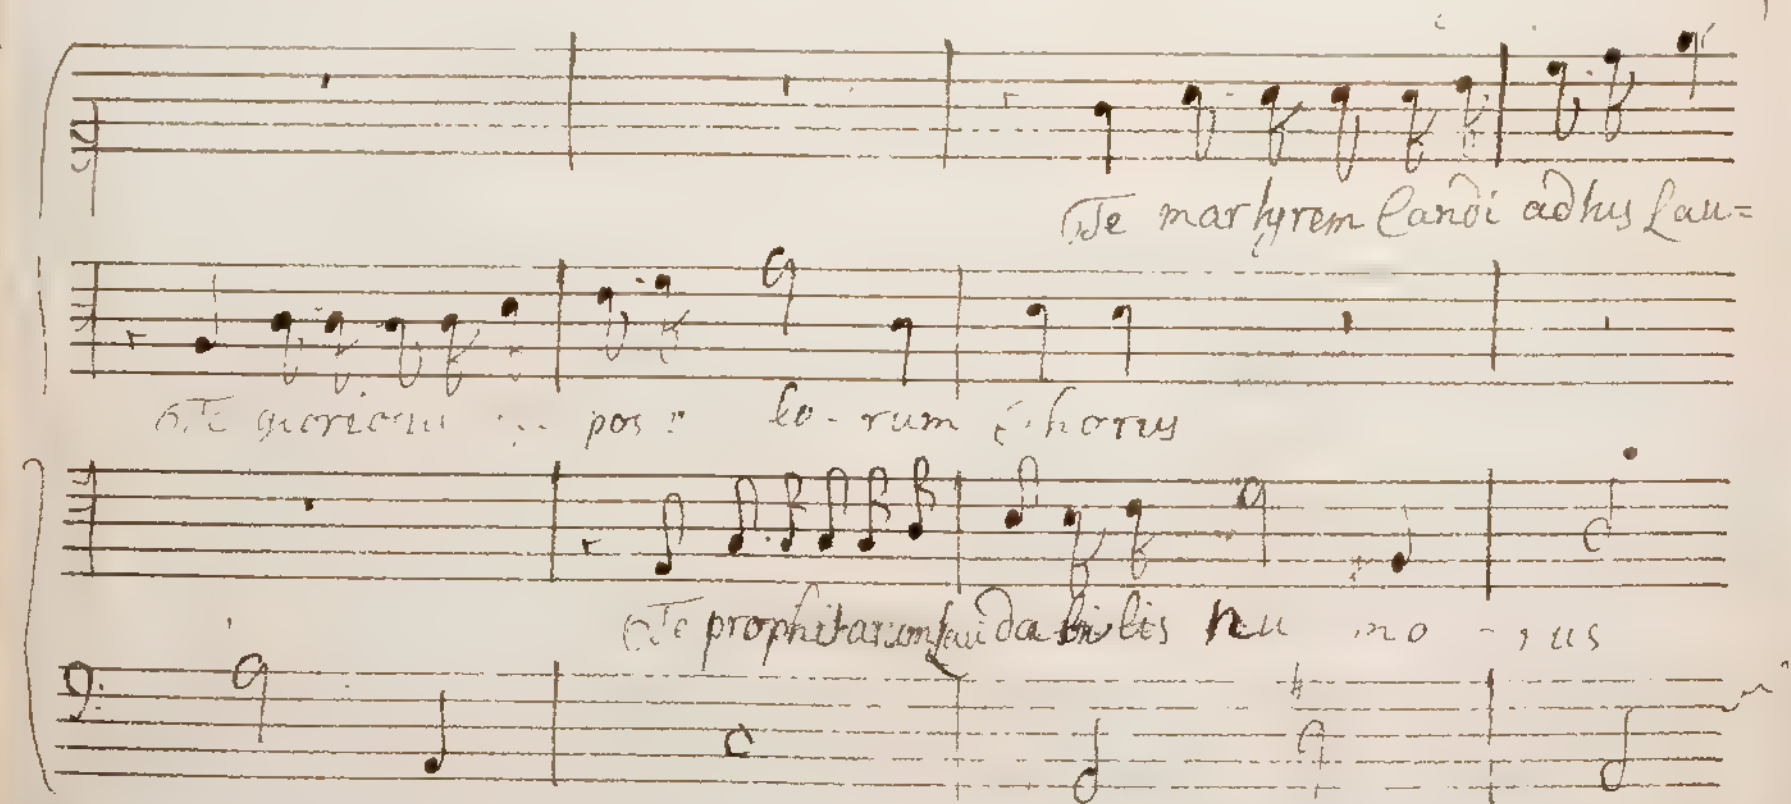 Te martyrem Candi adhus Lau=
Te pos lo-rum Chorus
Te prophitarum laudabilis nu mo - rus